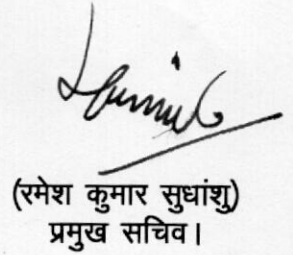 (रमेश कुमार सुधांशु)
प्रमुख सचिव।